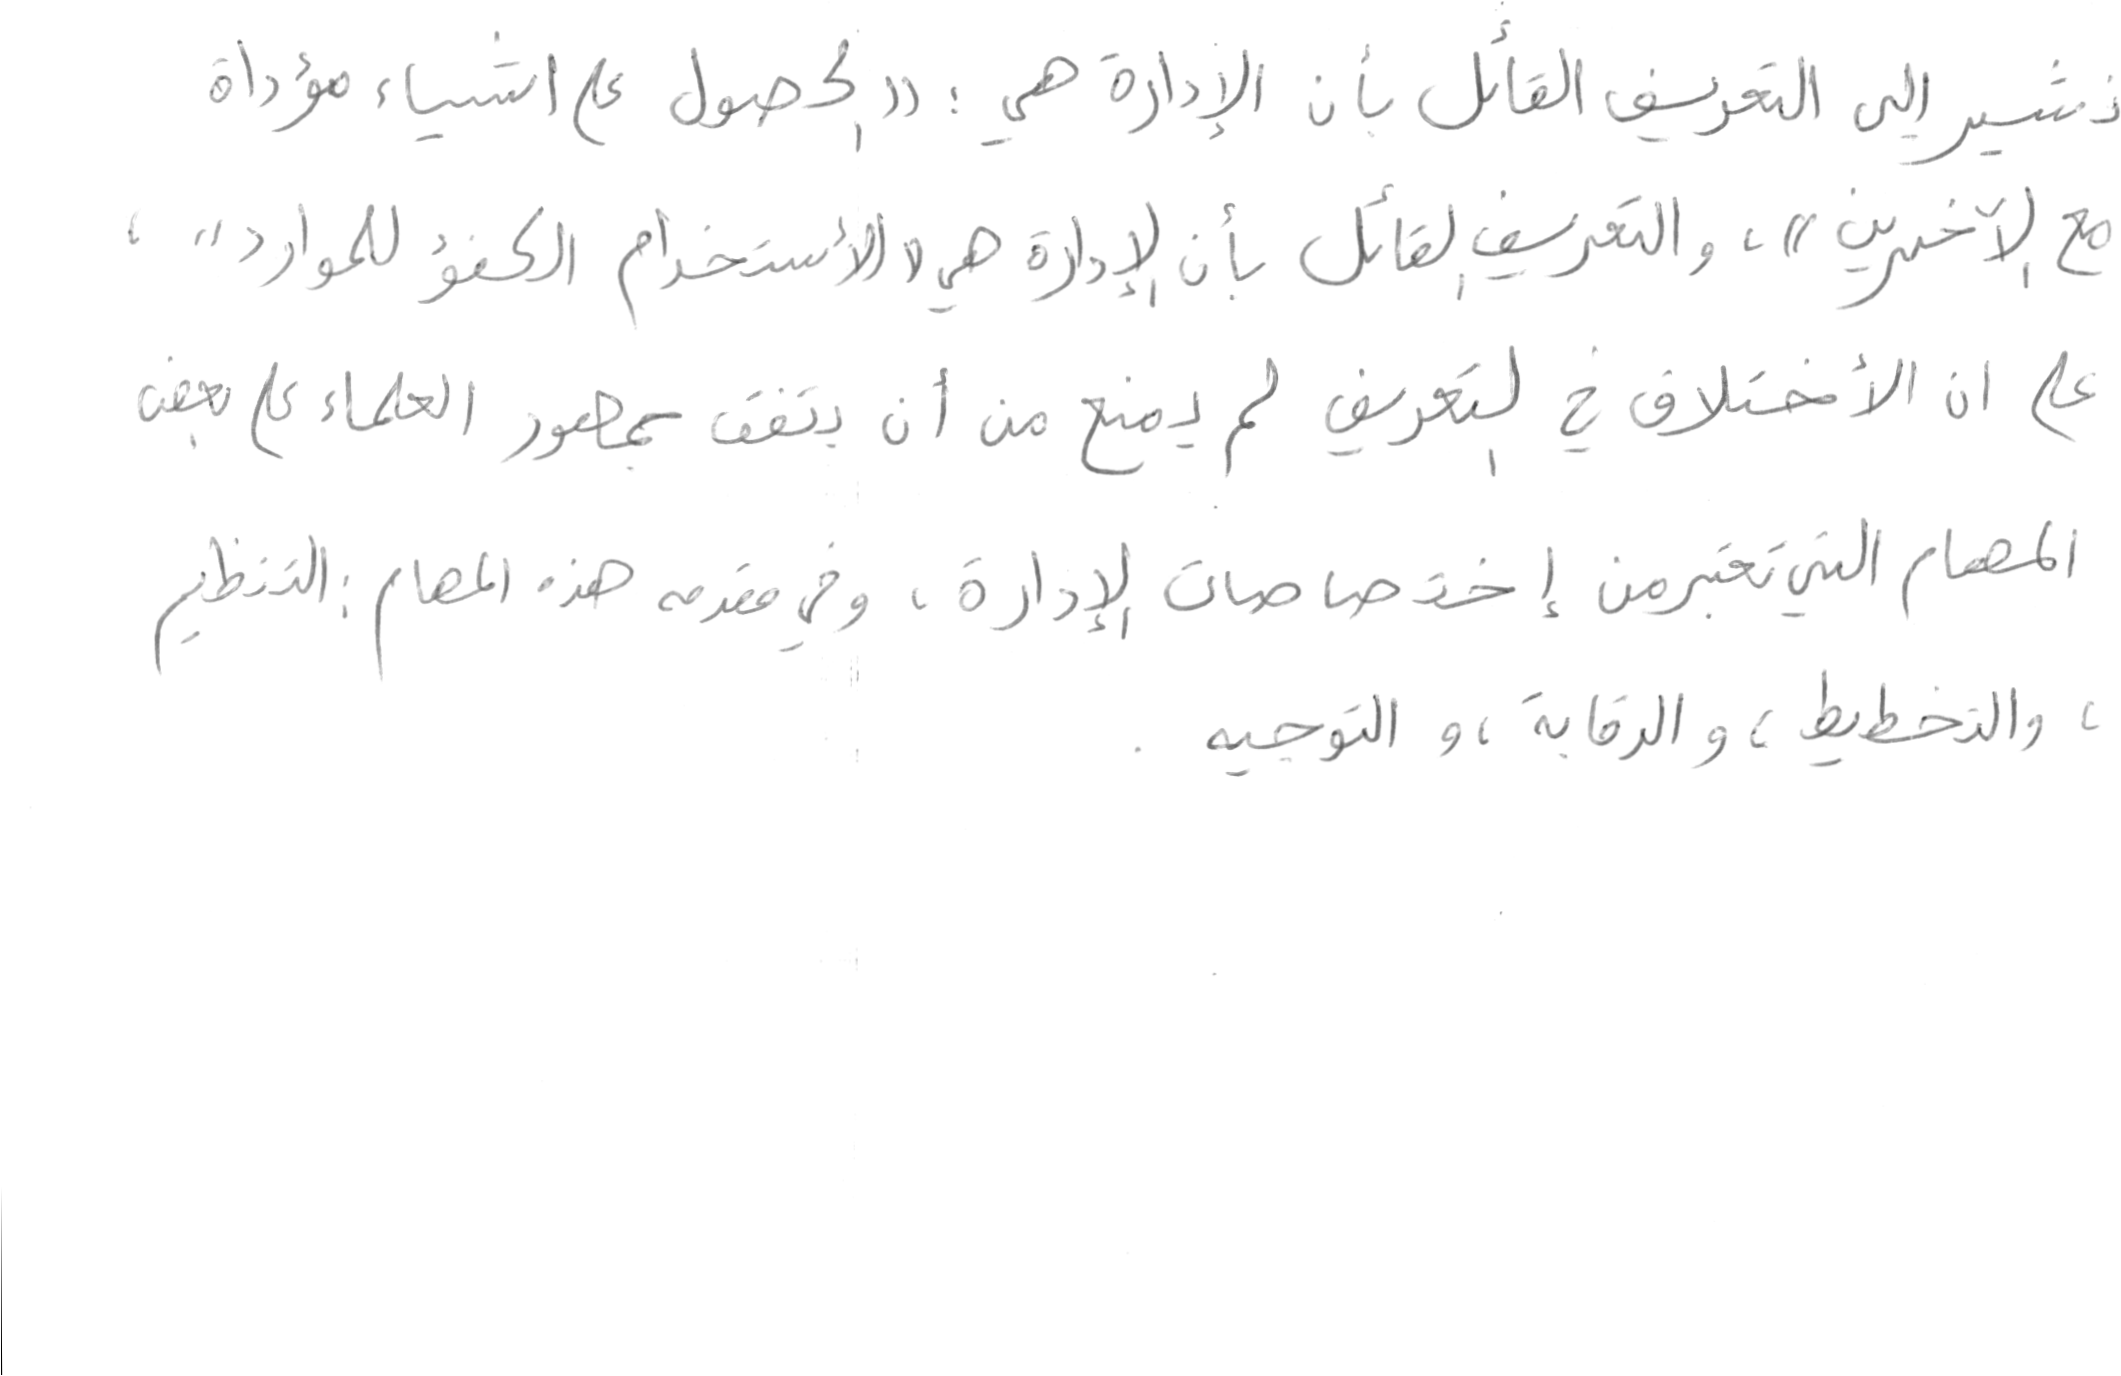 نشير إلى التعريف القائل بأن الإدارة هي : "الحصول على اشياء مؤداة
مع الآخرين" ، والتعريف القائل بأن الإدارة هي "الأستخدام الكفؤ للموارد" ،
على ان الأختلاف في التعريف لم يمنع من أن يتفق جمهور العلماء على بعض
المهام التي تعتبر من إختصاصات الإدارة ، وفي مقدمه هذه المهام : التنظيم
، والتخطيط ، و الرقابة ، و التوجيه .